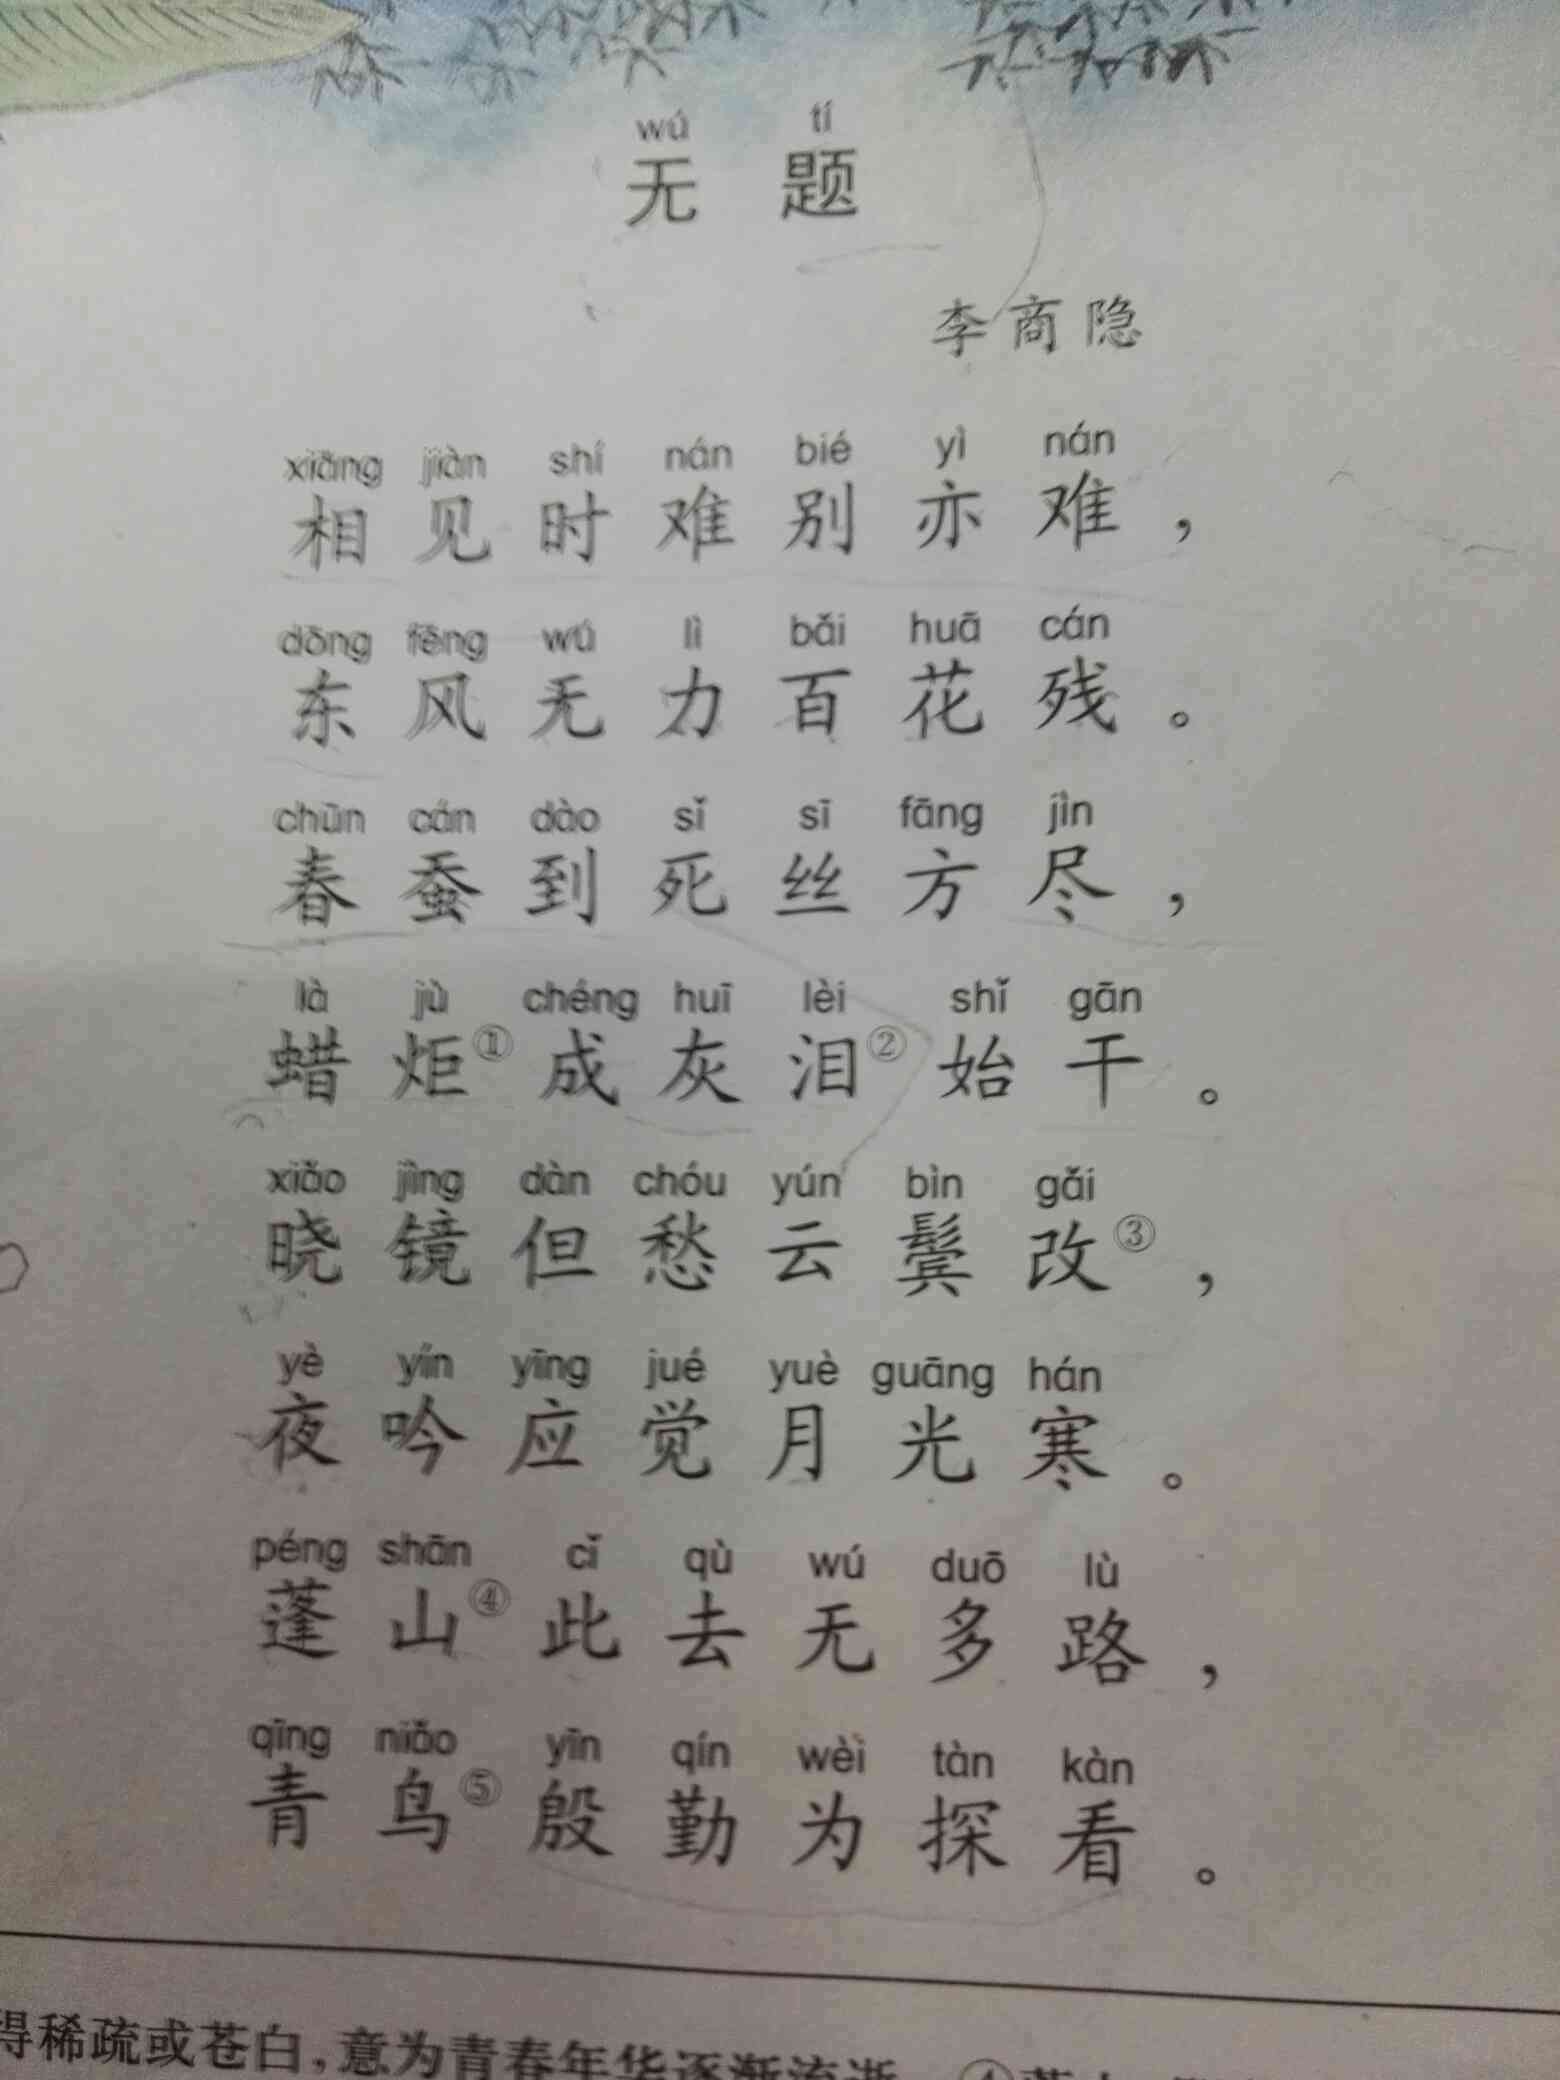 wú tí
无 题
李 商 隐
xiāng jiàn shí nán bié yì nán
相 见 时 难 别 亦 难 ，
dōng fēng wú lì bǎi huā cán
东 风 无 力 百 花 残 。
chūn cán dào sǐ sī fāng jìn
春 蚕 到 死 丝 方 尽 ，
là jù chéng huī lèi shǐ gān
蜡 炬① 成 灰 泪② 始 干 。
xiǎo jìng dàn chóu yún bìn gǎi
晓 镜 但 愁 云 鬓 改③ ，
yè yín yīng jué yuè guāng hán
夜 吟 应 觉 月 光 寒 。
péng shān cǐ qù wú duō lù
蓬 山④ 此 去 无 多 路 ，
qīng niǎo yīn qín wèi tàn kàn
青 鸟⑤ 殷 勤 为 探 看 。
得稀疏或苍白，意为青春年华逐渐流逝